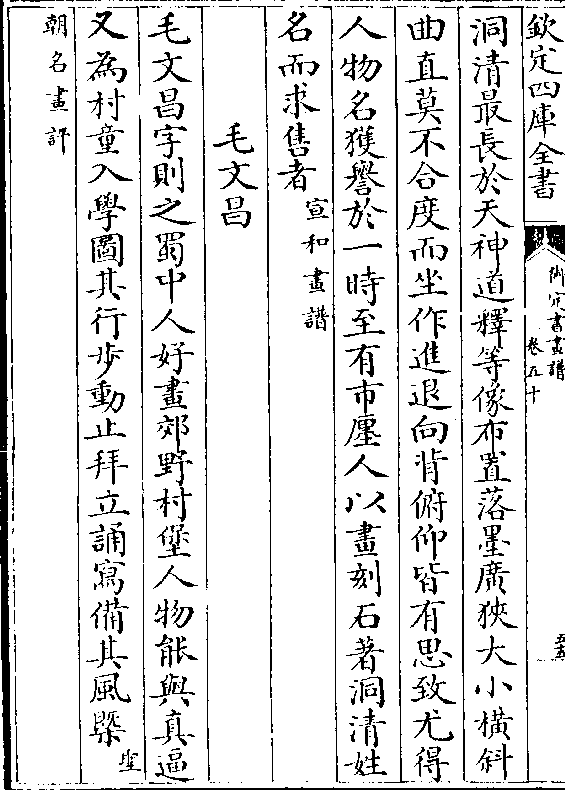 欽定四庫全書
御定書畫譜
卷五十
五
洞清最長於天神道釋等像布置落墨廣狹大小橫斜
曲直莫不合度而坐作進退向背俯仰皆有思致尤得
人物名獲譽於一時至有市廛人以畫刻石著洞清姓
名而求售者宣和畫譜
毛文昌
毛文昌字則之蜀中人好畫郊野村堡人物能與真逼
又為村童入學圖其行步動止拜立誦寫備其風槩聖
朝名畫評